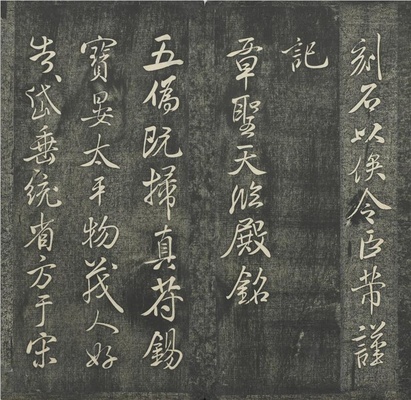 刻石以俟令臣芾謹
記
章聖天臨殿銘
五僞既掃真苻錫
寶晏太平物茂人好
告岱垂統省方于宋